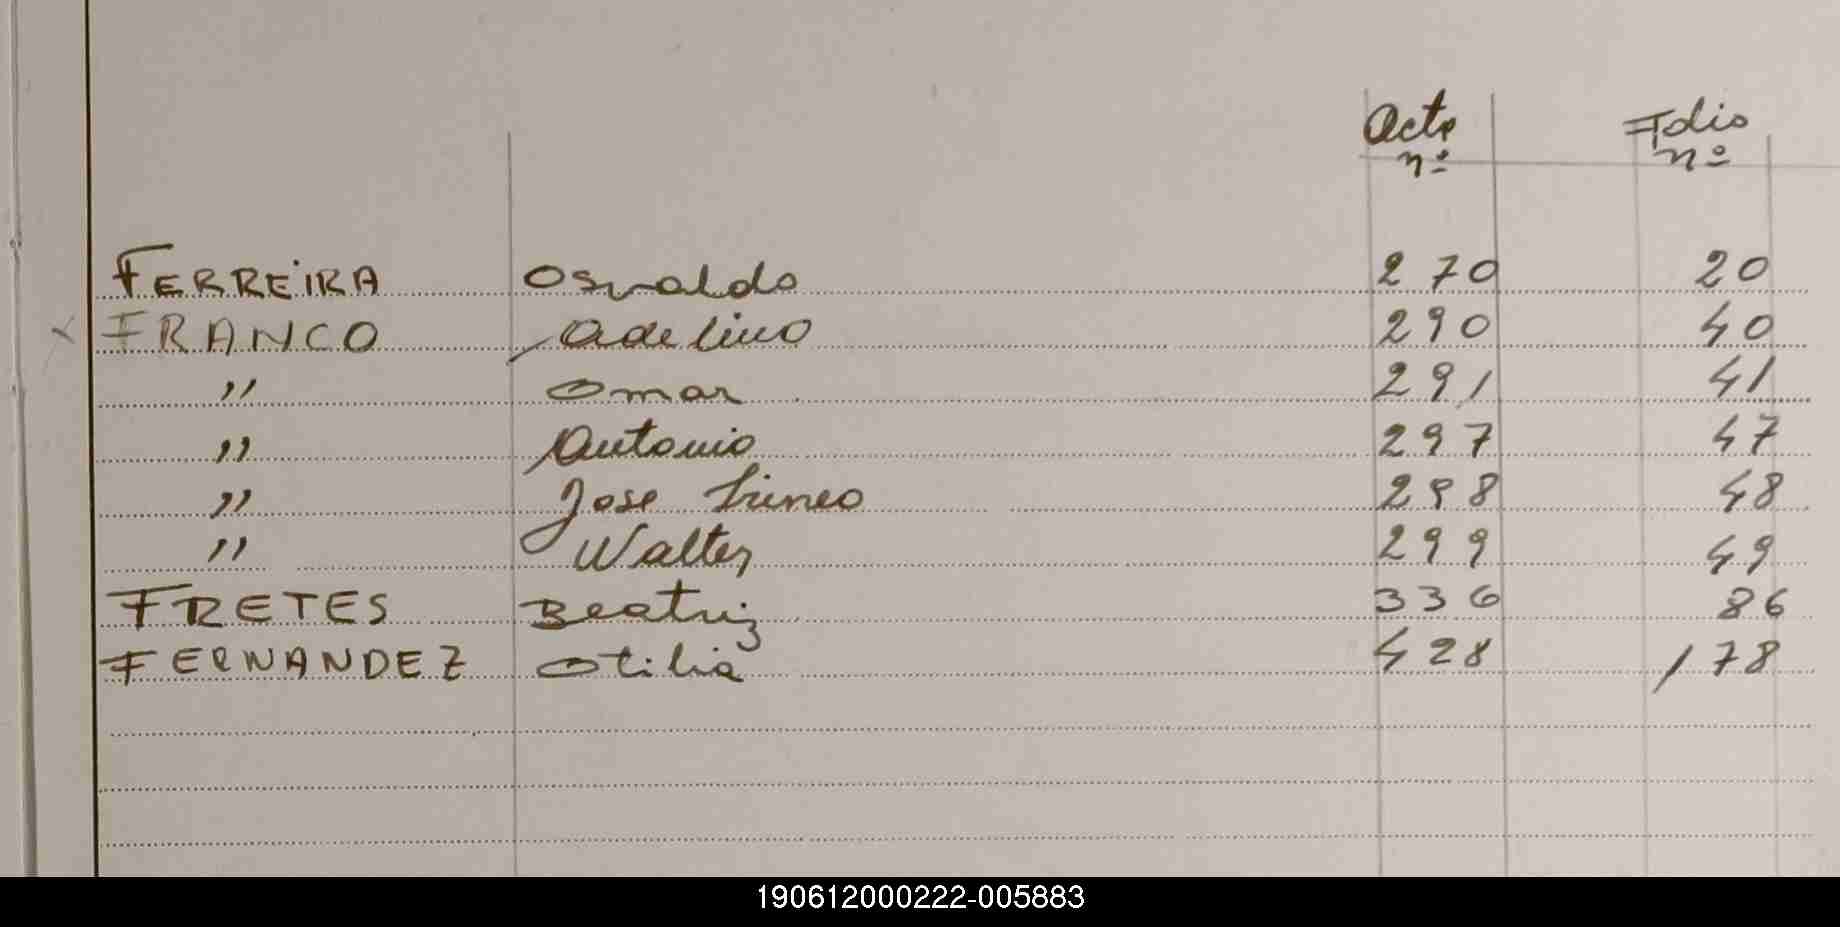 Acta Folio
nº nº
FERREIRA Osvaldo 270 20
FRANCO Adelino 290 40
" Omar 291 41
" Antonio 297 47
" Jose Irineo 298 48
" Walter 299 49
FRETES Beatriz 336 86
FERNANDEZ Otilia 428 178
190612000222-005883